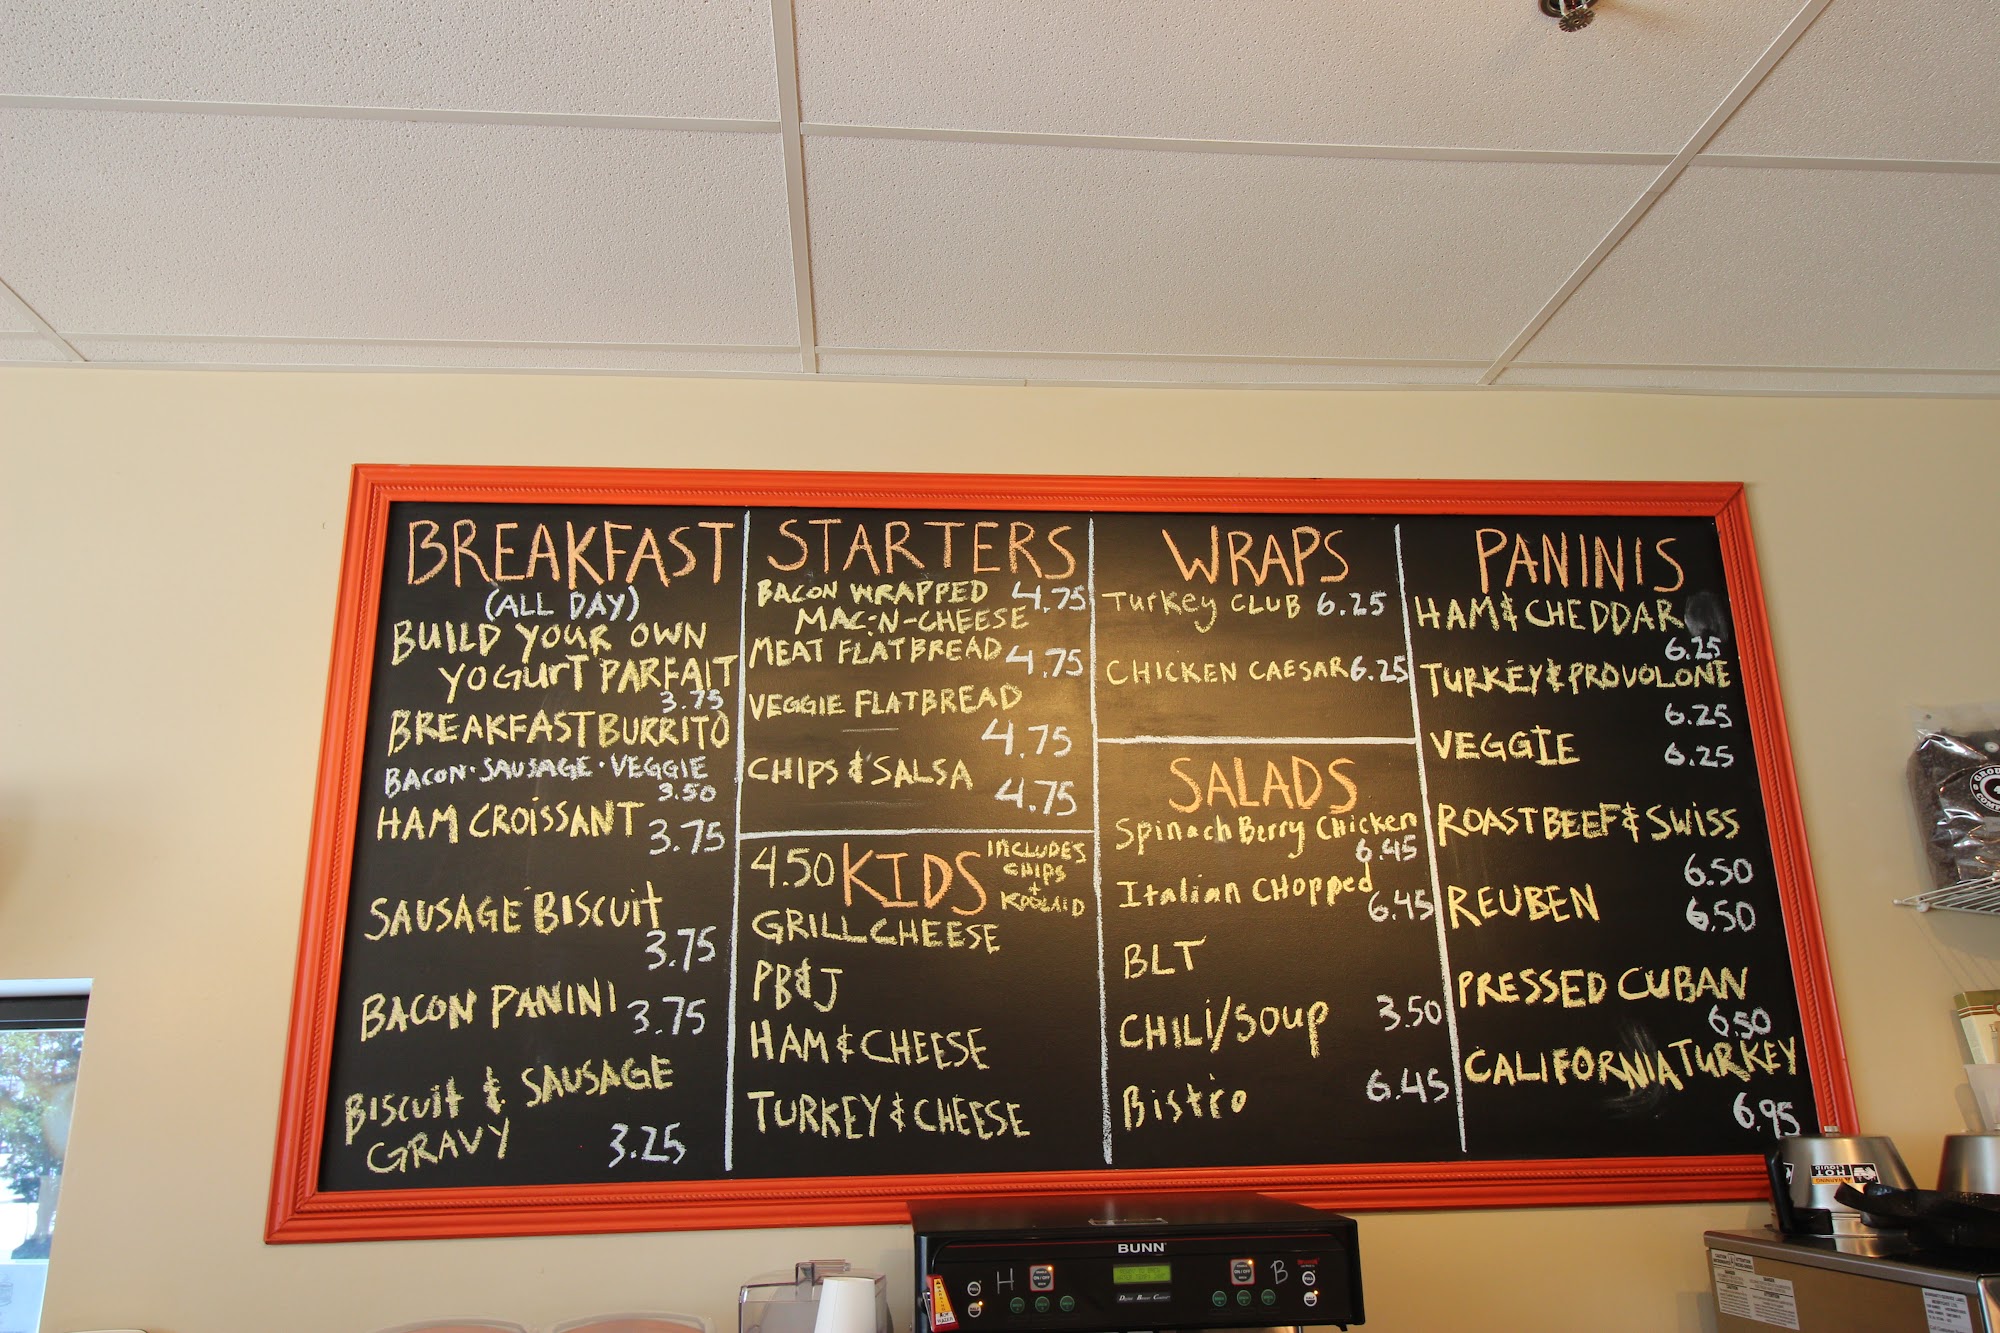 BREAKFAST
(ALL DAY)
BUILD YOUR OWN
YOGURT PARFAIT
3.75
BREAKFAST BURRITO
BACON·SAUSAGE·VEGGIE
3.50
HAM CROISSANT
3.75
SAUSAGE BISCUIT
3.75
BACON PANINI
3.75
BISCUIT & SAUSAGE
GRAVY 3.25
STARTERS
BACON WRAPPED 4.75
MAC-N-CHEESE
MEAT FLATBREAD 4.75
VEGGIE FLATBREAD
4.75
CHIPS & SALSA
4.75
4.50 KIDS
INCLUDES
CHIPS
+
KOOLAID
GRILL CHEESE
PB&J
HAM & CHEESE
TURKEY & CHEESE
WRAPS
Turkey CLUB 6.25
CHICKEN CAESAR 6.25
SALADS
Spinach Berry Chicken
6.45
Italian CHopped
6.45
BLT
CHILI/SOUP 3.50
Bistro 6.45
PANINIS
HAM & CHEDDAR
6.25
TURKEY & PROVOLONE
6.25
VEGGIE 6.25
ROAST BEEF & SWISS
6.50
REUBEN 6.50
PRESSED CUBAN
6.50
CALIFORNIA TURKEY
6.95
BUNN
H
B
HOT
LIQUID